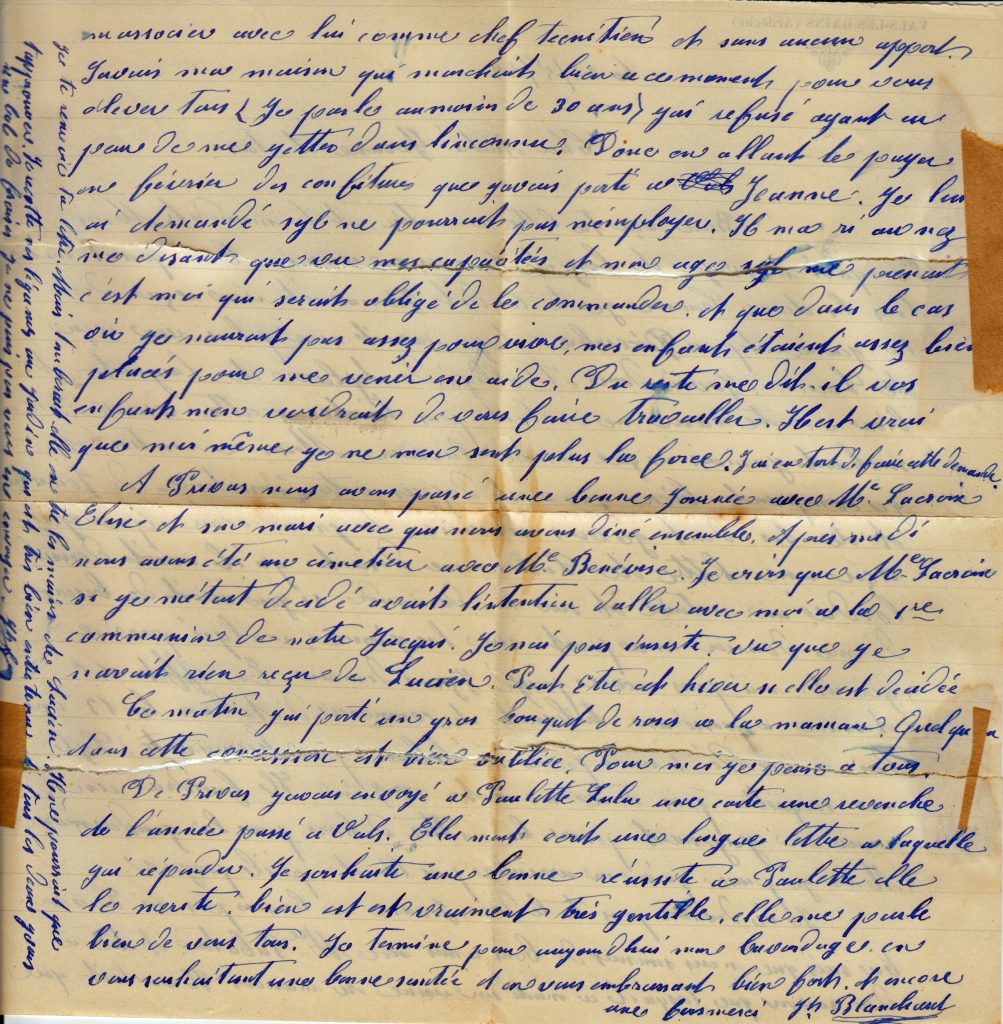 m'associer avec lui comme chef et sans aucun apport.
J'avais ma maison qui marchait bien a ce moment pour vous
élever tous (Je parle au moins de 30 ans) gai refusé ayant eu
peur de me getter dans linconnu. Donc en allant le payer
en février des confitures que gavais porté a Jeanne. Je lui
ai demandé syl ne pourrait pas m'employer. Il ma ri au nez
me disant que vu mes capacitées et mon age syl me prenait
c'est moi qui serait obligé de les commander. et que dans le cas
où ge naurait pas assez pour vivre, mes enfants étaient assez bien
placés pour me venir en aide. Du reste me dit-il vos
enfants men voudrait de vous faire travailler. Il est vrai
que moi même ge ne men sent plus la force. J'ai eu tort de faire cette demande.
A Privas nous avons passé une bonne Journée avec Me Lacroix
Elise et son mari avec qui nous avons diné ensemble. Après midi
nous avons été au cimetière avec Me Benévise. Je crois que Me Lacroix
si ge métait decidé avait lintention daller avec moi a la 1re
communion de notre Jacqui. Je nai pas insisté. vu que ge
navait rien reçu de Lucien. Peut Etre cet hiver si elle est décidée
Ce matin gai porté un gros bouquet de roses a la maman. Quelqu'un
dans cette concession est bien oubliée. Pour moi ge pense a tous.
De Privas gavais envoyé a Paulette Lulu une carte une revenche
de l'année passé a Vals. Elles mont ecrit une longue lettre a laquelle
gai répondu. Je souhaite une bonne réussite à Paulette elle
le merite. bien et est vraiment très gentille. elle me parle
bien de vous tous. Je termine pour aujourdhui mon bavardage en
vous souhaitant une bonne santée et en vous embrassant bien fort. et encore
une fois merci Jh Blanchard
Je te renvoie ta lettre. Mais tomberait elle entre les mains de Lucien. Il ne pourrait que
tapprouver. Je recolte nos légumes au jardin qui est très bien entretenu. tous les Jours
au bal de ge ne puis pas vous en envoyer.
VALS-LES-BAINS (Ardèche)